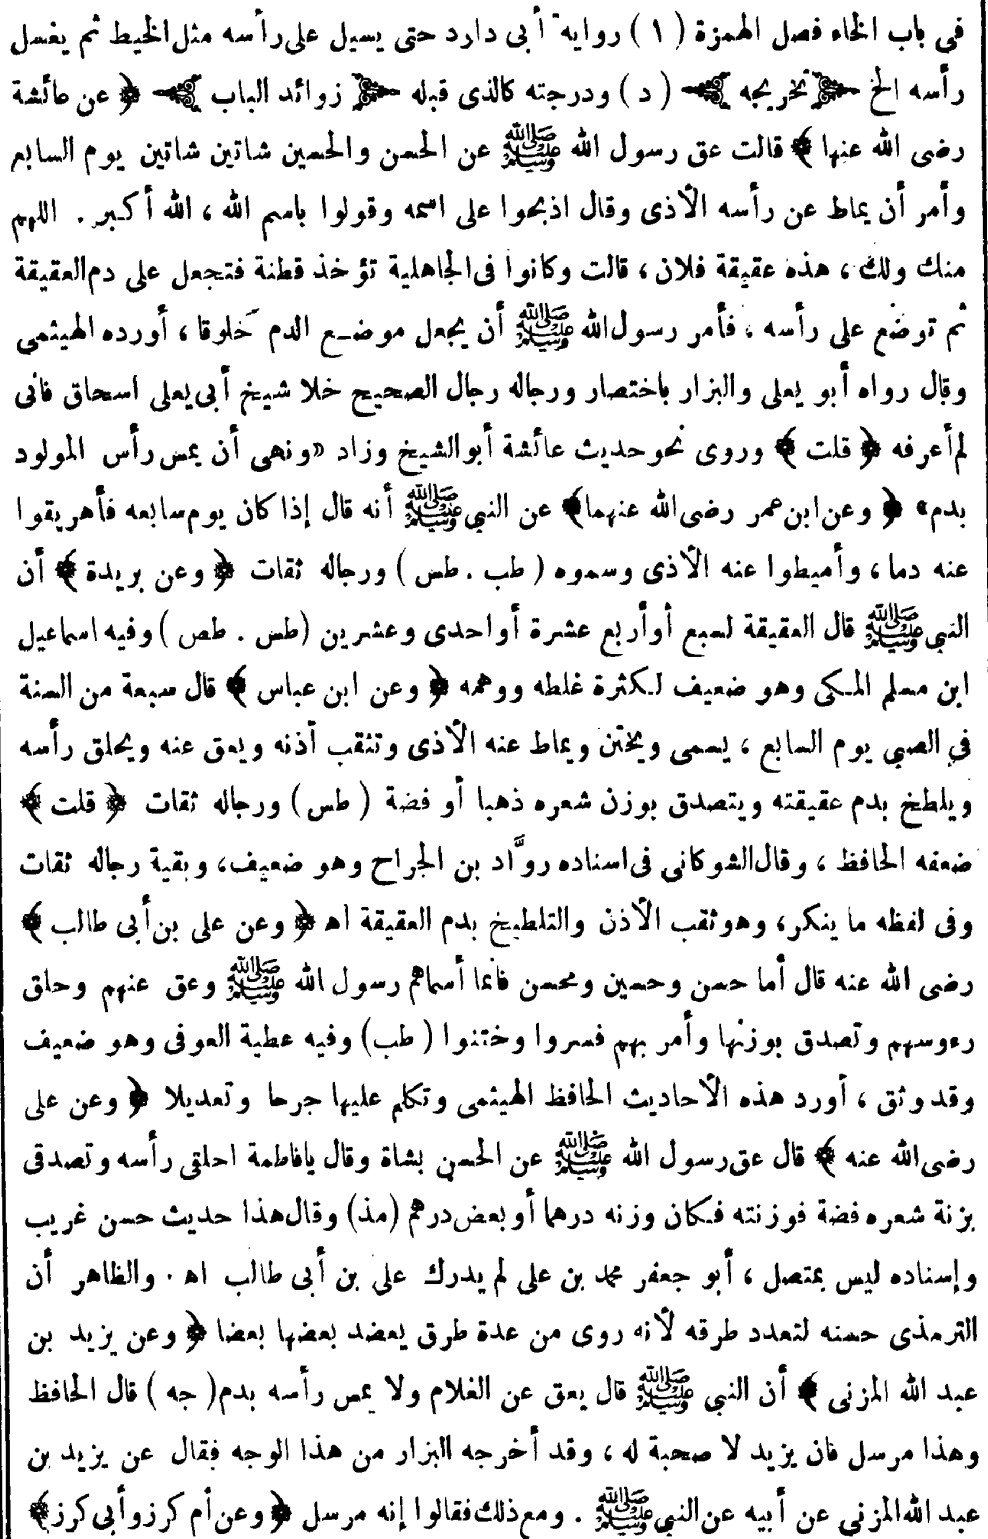 في باب الخاء فصل الهمزة (١) رواية أبى دارد حتى يسيل على رأسه مثل الخيط ثم يغسل
رأسه الخ تخريجه (د) ودرجته كالذى قبله زوائد الباب ﴿ عن عائشة
رضى الله عنها ﴾ قالت عق رسول الله ﷺ عن الحسن والحسين شاتين شاتين يوم السابع
وأمر أن يماط عن رأسه الأذى وقال اذبحوا على اسمه وقولوا باسم الله ، الله أكبر . اللهم
منك ولك ، هذه عقيقة فلان ، قالت وكانوا فى الجاهلية تؤخذ قطنة فتجعل على دم العقيقة
ثم توضع على رأسه ، فأمر رسول الله ﷺ أن يجعل موضع الدم خلوقا ، أورده الهيثمى
وقال رواه أبو يعلى والبزار باختصار ورجاله رجال الصحيح خلا شيخ أبى يعلى اسحاق فانى
لم أعرفه ﴿ قلت ﴾ وروى نحو حديث عائشة أبو الشيخ وزاد «ونهى أن يمس رأس المولود
بدم» ﴿ وعن ابن عمر رضى الله عنهما﴾ عن النبي ﷺ أنه قال إذا كان يوم سابعه فأهريقوا
عنه دما ، وأميطوا عنه الأذى وسموه ( طب . طس ) ورجاله ثقات ﴿ وعن بريدة ﴾ أن
النبي ﷺ قال العقيقة لسبع أو أربع عشرة أو احدى وعشرين (طس . طص ) وفيه اسماعيل
ابن مسلم المكى وهو ضعيف لكثرة غلطه ووهمه ﴿ وعن ابن عباس ﴾ قال سبعة من السنة
في الصبي يوم السابع ، يسمى ويختن ويماط عنه الأذى وتثقب أذنه ويعق عنه ويحلق رأسه
ويلطخ بدم عقيقته ويتصدق بوزن شعره ذهبا أو فضة ( طس ) ورجاله ثقات ﴿ قلت ﴾
ضعفه الحافظ ، وقال الشوكانى فى اسناده روَّاد بن الجراح وهو ضعيف، وبقية رجاله ثقات
وفى لفظه ما ينكر، وهو ثقب الأذن والتلطيخ بدم العقيقة اه ﴿ وعن على بن أبى طالب ﴾
رضى الله عنه قال أما حسن وحسين ومحسن فانما أسماهم رسول الله ﷺ وعق عنهم وحلق
رءوسهم وتصدق بوزنها وأمر بهم فسروا وختنوا ( طب) وفيه عطية العوفى وهو ضعيف
وقد وثق ، أورد هذه الأحاديث الحافظ الهيثمى وتكلم عليها جرحا وتعديلا ﴿ وعن على
رضى الله عنه ﴾ قال عق رسول الله ﷺ عن الحسن بشاة وقال يافاطمة احلقى رأسه وتصدقى
بزنة شعره فضة فوزنته فكان وزنه درهما أو بعض درهم (مذ) وقال هذا حديث حسن غريب
وإسناده ليس بمتصل ، أبو جعفر محمد بن على لم يدرك على بن أبى طالب اه . والظاهر أن
الترمذى حسنه لتعدد طرقه لأنه روى من عدة طرق يعضد بعضها بعضا ﴿ وعن يزيد بن
عبد الله المزنى ﴾ أن النبي ﷺ قال يعق عن الغلام ولا يمس رأسه بدم( جه ) قال الحافظ
وهذا مرسل فان يزيد لا صحبة له ، وقد أخرجه البزار من هذا الوجه فقال عن يزيد بن
عبد الله المزنى عن أبيه عن النبي ﷺ . ومع ذلك فقالوا إنه مرسل ﴿ وعن أم كرز وأبى كرز﴾